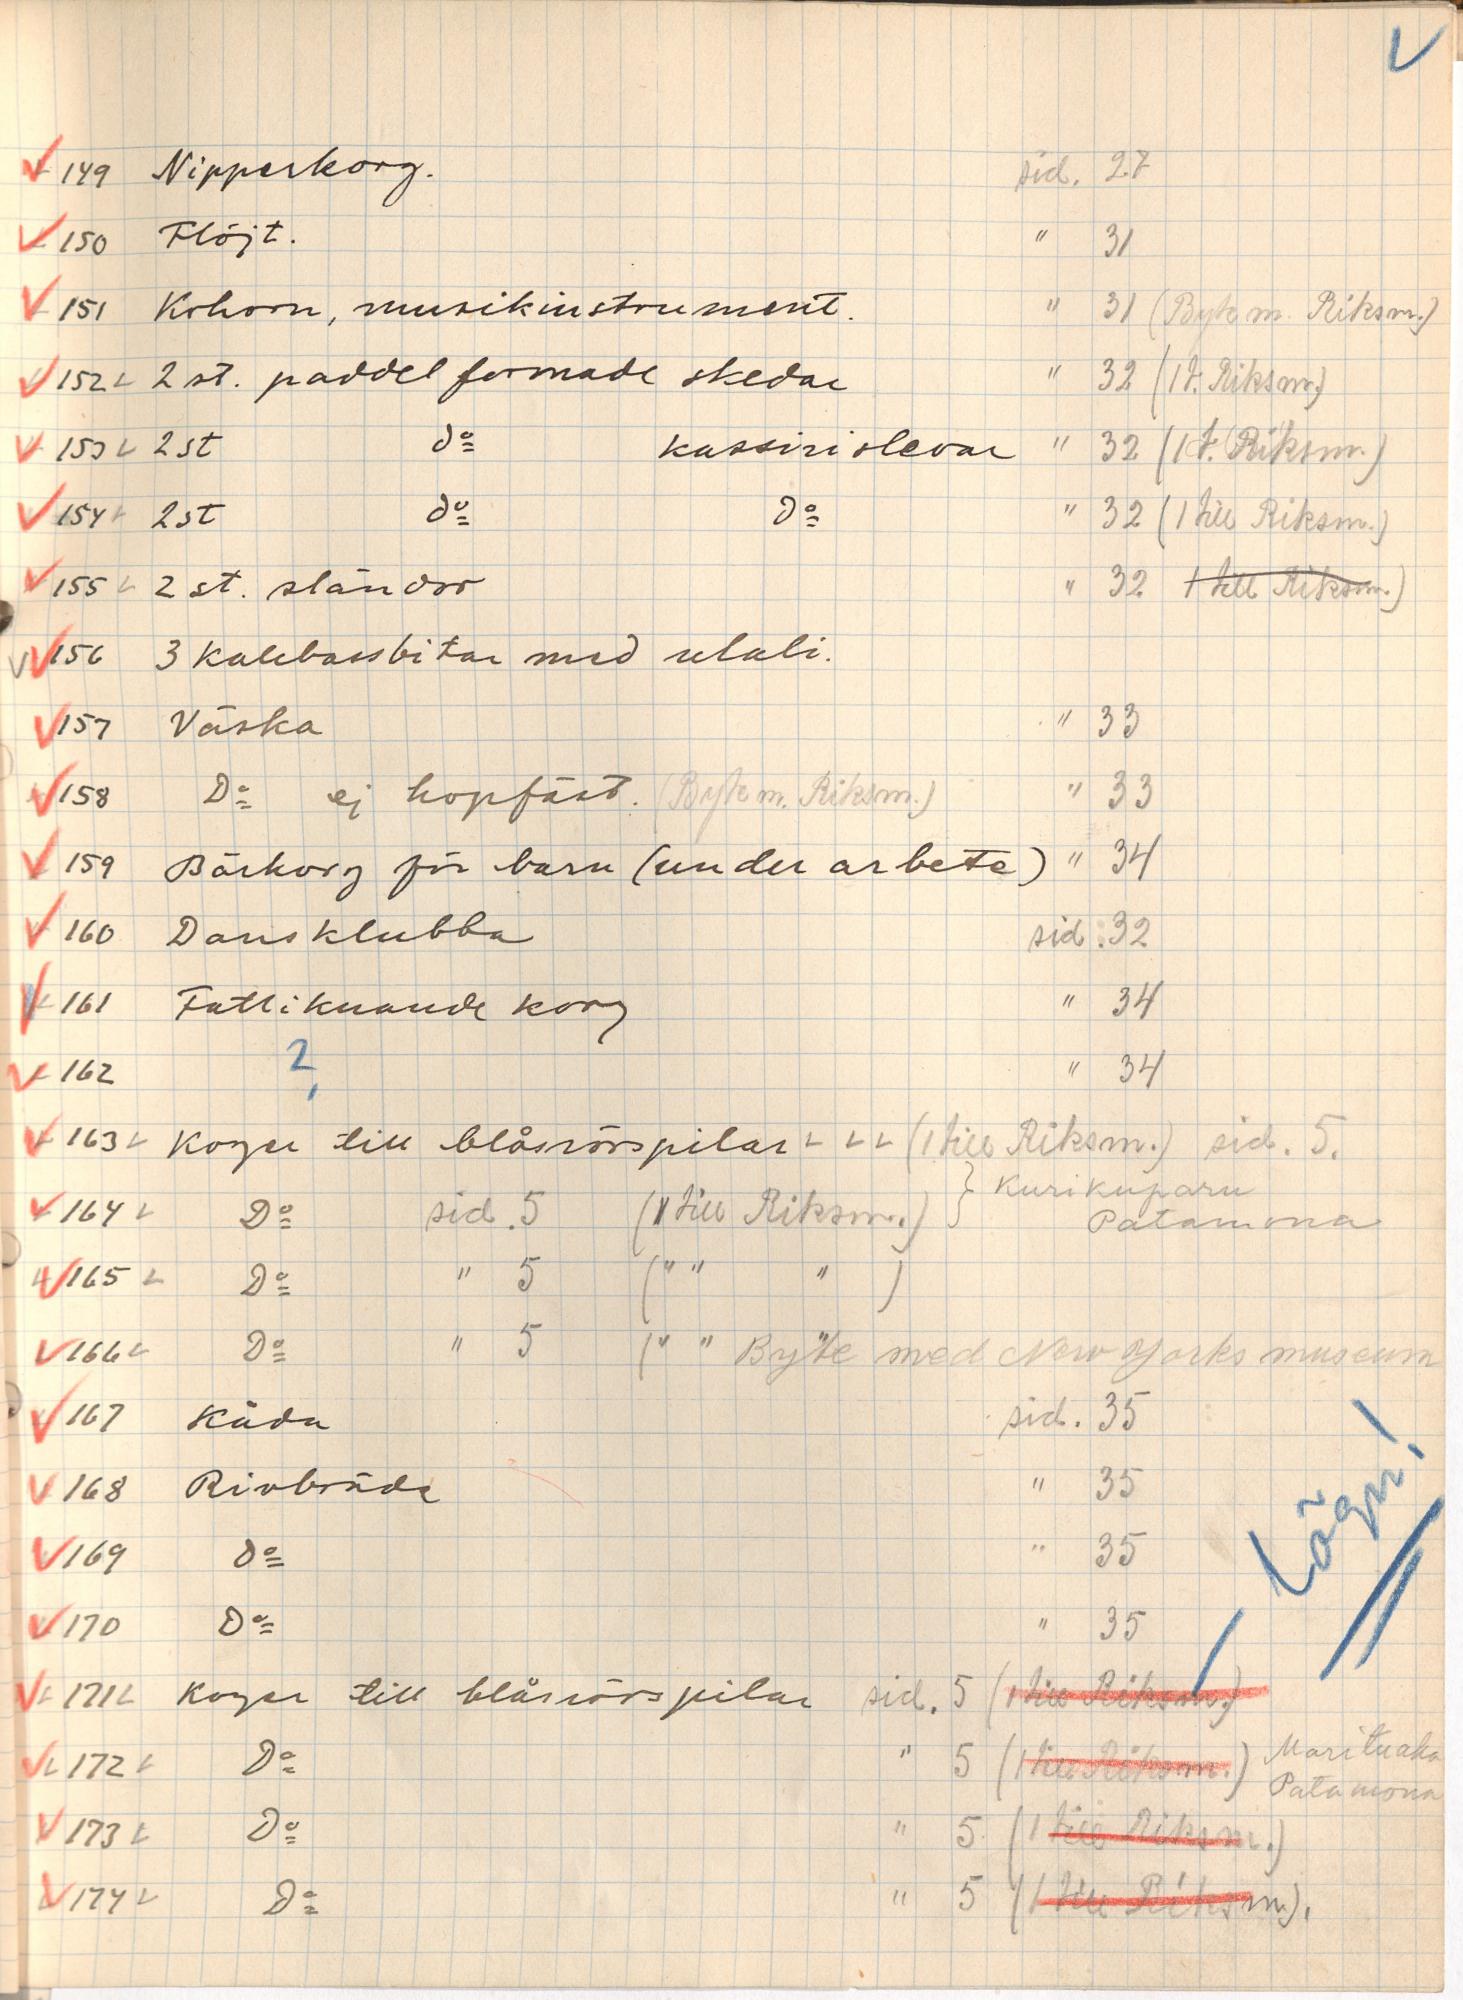 149 Nipperkorg. sid. 27
150 Flöjt. " 31
151 Kohorn, musikinstrument. " 31 (Byte m. Riksm.)
152 2 st. paddelformade skedar " 32 (1 t. Riksm.)
153 2 st do kassirislevar " 32 (1 t. Riksm.)
154 2 st do do " 32 (1 till Riksm.)
155 2 st. sländor " 32 1 till Riksm.)
156 3 kalebassbitar med
157 Väska " 33
158 Do ej hopfäst. (Byte m. Riksm.) " 33
159 Bärkorg för barn (under arbete) " 34
160 Dansklubba sid. 32
161 Fatliknande korg " 34
162 ? " 34
163 Koger till blåsrörspilar (1 till Riksm.) sid. 5.
164 Do sid. 5 (1 till Riksm.) } Kurikuparu
Patamona
165 Do " 5 (" " " )
166 Do " 5 (" " " Byte med New Yorks museum
167 Kåda sid. 35
168 Rivbräde " 35
169 do " 35
170 Do " 35
171 Koger till blåsrörspilar sid. 5 (1 till Riksm.)
172 Do " 5 (1 till Riksm.) Marituaka
Patamona
173 Do " 5 (1 till Riksm.)
174 Do " 5 (1 till Riksm.).